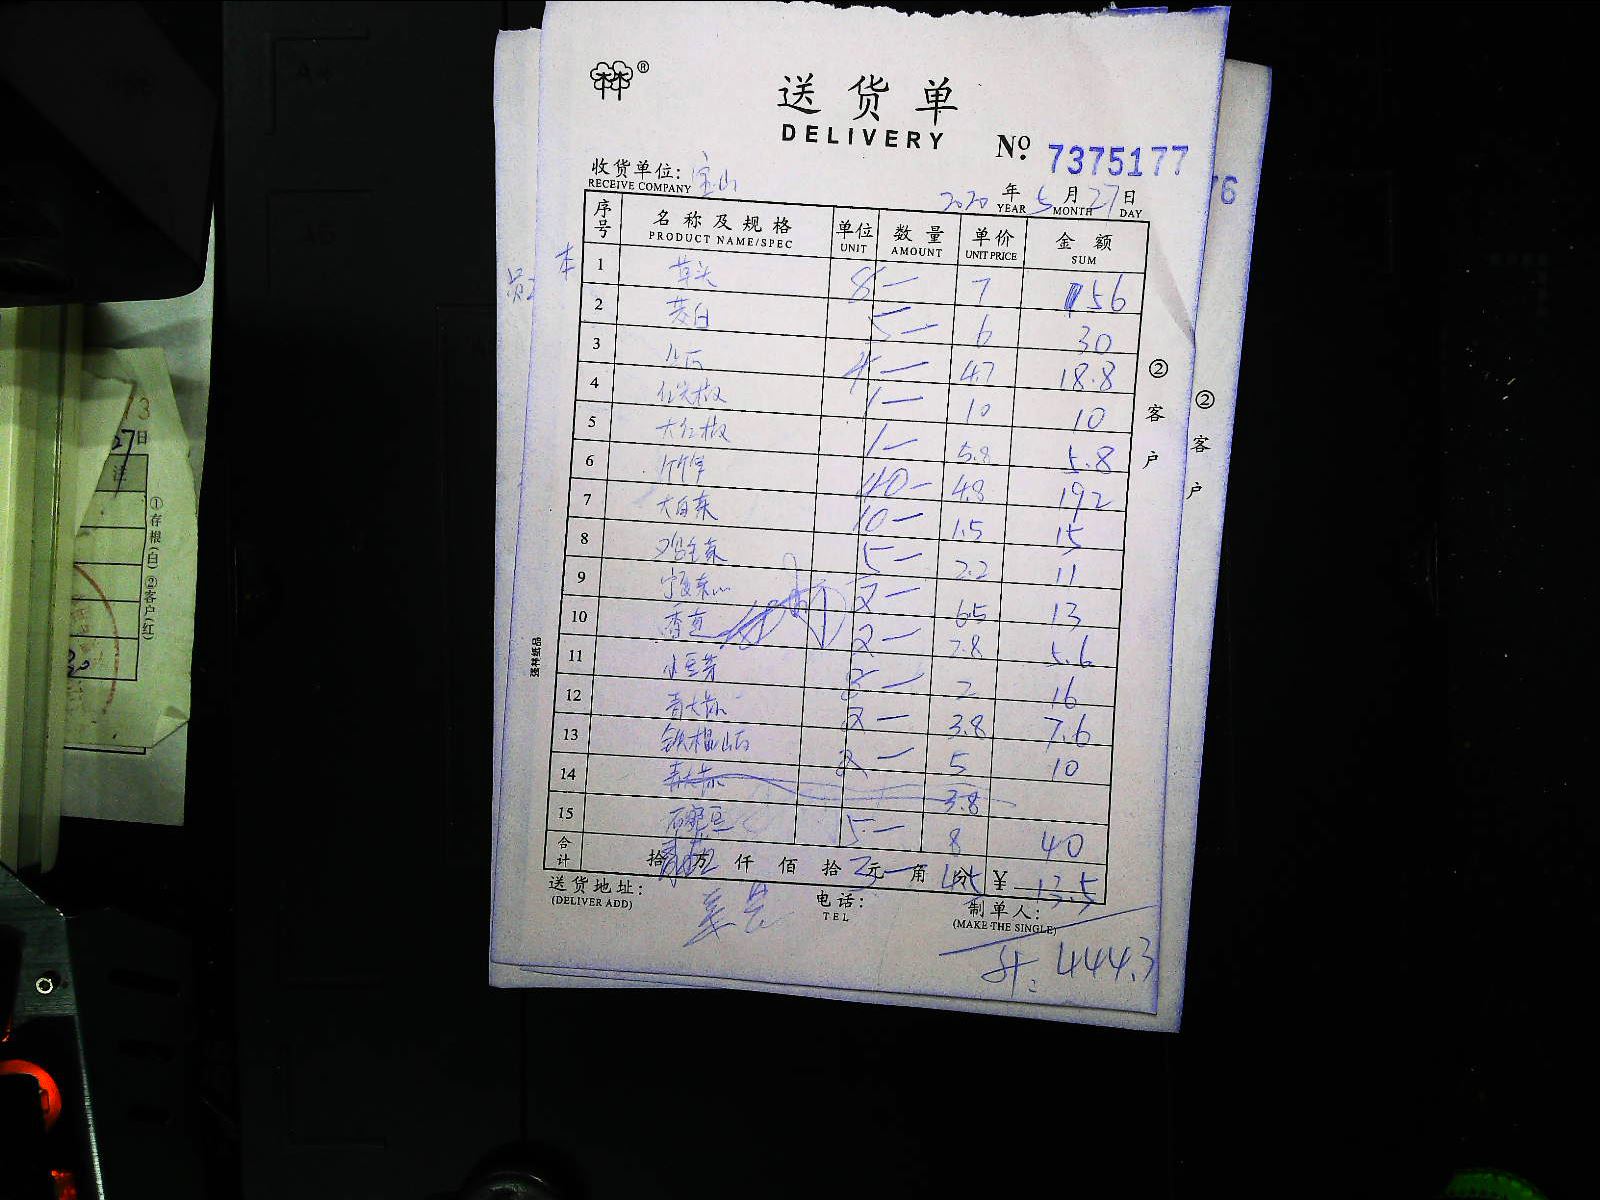 ®
送货单
DELIVERY
No. 7375177
76
收货单位: 宝山
RECEIVE COMPANY
2020 年 5 月 27 日
YEAR MONTH DAY
序号 名称及规格 单位 数量 单价 金额
PRODUCT NAME/SPEC UNIT AMOUNT UNIT PRICE SUM
本
1 草头 8— 7 56
2 茭白 5— 6 30
3 4— 4.7 18.8
4 1— 10 10
5 大红椒 1— 5.8 5.8
6 40— 4.8 192
7 大白菜 10— 1.5 15
8 5— 2.2 11
9 宁夏菜心 2— 6.5 13
10 2— 2.8 5.6
11 小豆芽 2 16
12 2— 3.8 7.6
13 铁棍山药 2— 5 10
14 3.8
15 5— 8 40
合计 拾 万 仟 佰 拾 元 角 分 ¥ 13.5
3— 4.5
送货地址:
(DELIVER ADD)
电话:
TEL
制单人:
(MAKE THE SINGLE)
计: 444.3
②客户
②客户
强林纸品
27日
注
①存根(白) ②客户(红)